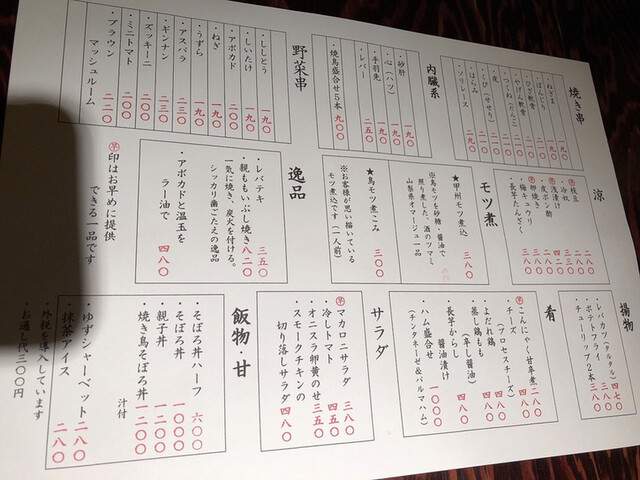 焼き串
・ねぎま
・ぼんじり
・ひざ軟骨
・やげん軟骨
・つくね(たんこ
・皮
・くび(せせり)
・はらみ
・ソリレス 二九〇
内臓系
・砂肝 一九〇
・心(ハツ) 一九〇
・手羽先 二五〇
・レバー
・焼鳥盛合せ5本 九〇〇
野菜串
・ししとう 一九〇
・しいたけ 一九〇
・アボカド 二〇〇
・ねぎ 一九〇
・うずら 一九〇
・アスパラ 二三〇
・ギンナン 二三〇
・ズッキーニ 二一〇
・ミニトマト 二一〇
・ブラウン
マッシュルーム 二二〇
涼
早枝豆 二八〇
・冷奴 二八〇
早浅漬け
・皮ポン酢
早卵焼き 三八〇
・梅キュウリ 三八〇
・長芋たんざく
モツ煮
★甲州モツ煮込 三八〇
※鳥モツを砂糖・醤油で
照り煮した、酒のツマミ
山梨県オマージュ一品
★鳥モツ煮こみ 三〇〇
※お客様が思い描いている
モツ煮込です(一人前)
逸品
・レバテキ 三五〇
・親ももいぶし焼き 八二〇
一気に焼き、炭火を付ける。
シッカリ歯ごたえの逸品
・アボカドと温玉を
ラー油で 四八〇
早印はお早めに提供
できる一品です
揚物
・レバカツ(タルタル) 四七〇
・ポテトフライ 三八〇
・チューリップ2本
肴
早こんにゃく甘辛煮 二八〇
・チーズ
(プロセスチーズ) 四八〇
・よだれ鶏 四八〇
・蒸し鶏もも
(辛し醤油) 四八〇
・長芋からし
醤油漬け
・ハム盛合せ 一〇〇〇
(チンタネーゼ&パルマハム)
サラダ
早マカロニサラダ 三八〇
・冷しトマト 四五〇
・オニスラ卵黄のせ 三五〇
・スモークチキンの
切り落しサラダ 四八〇
飯物・甘
・そぼろ丼ハーフ 六〇〇
・そぼろ丼 一〇〇〇
・親子丼 一二〇〇
・焼き鳥そぼろ丼 一二〇〇
汁付
・ゆずシャーベット 二八〇
・抹茶アイス 二八〇
・外税を導入しています
・お通し代三〇〇円